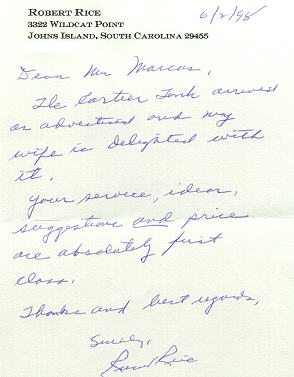 ROBERT RICE
3322 WILDCAT POINT
JOHNS ISLAND, SOUTH CAROLINA 29455
6/2/98
Dear Mr Marcus,
The Cartier Tank arrived
as advertised and my
wife is delighted with
it.
Your service, ideas,
suggestions and price
are absolutely first
class.
Thanks and best regards,
Sincerely,
Rice